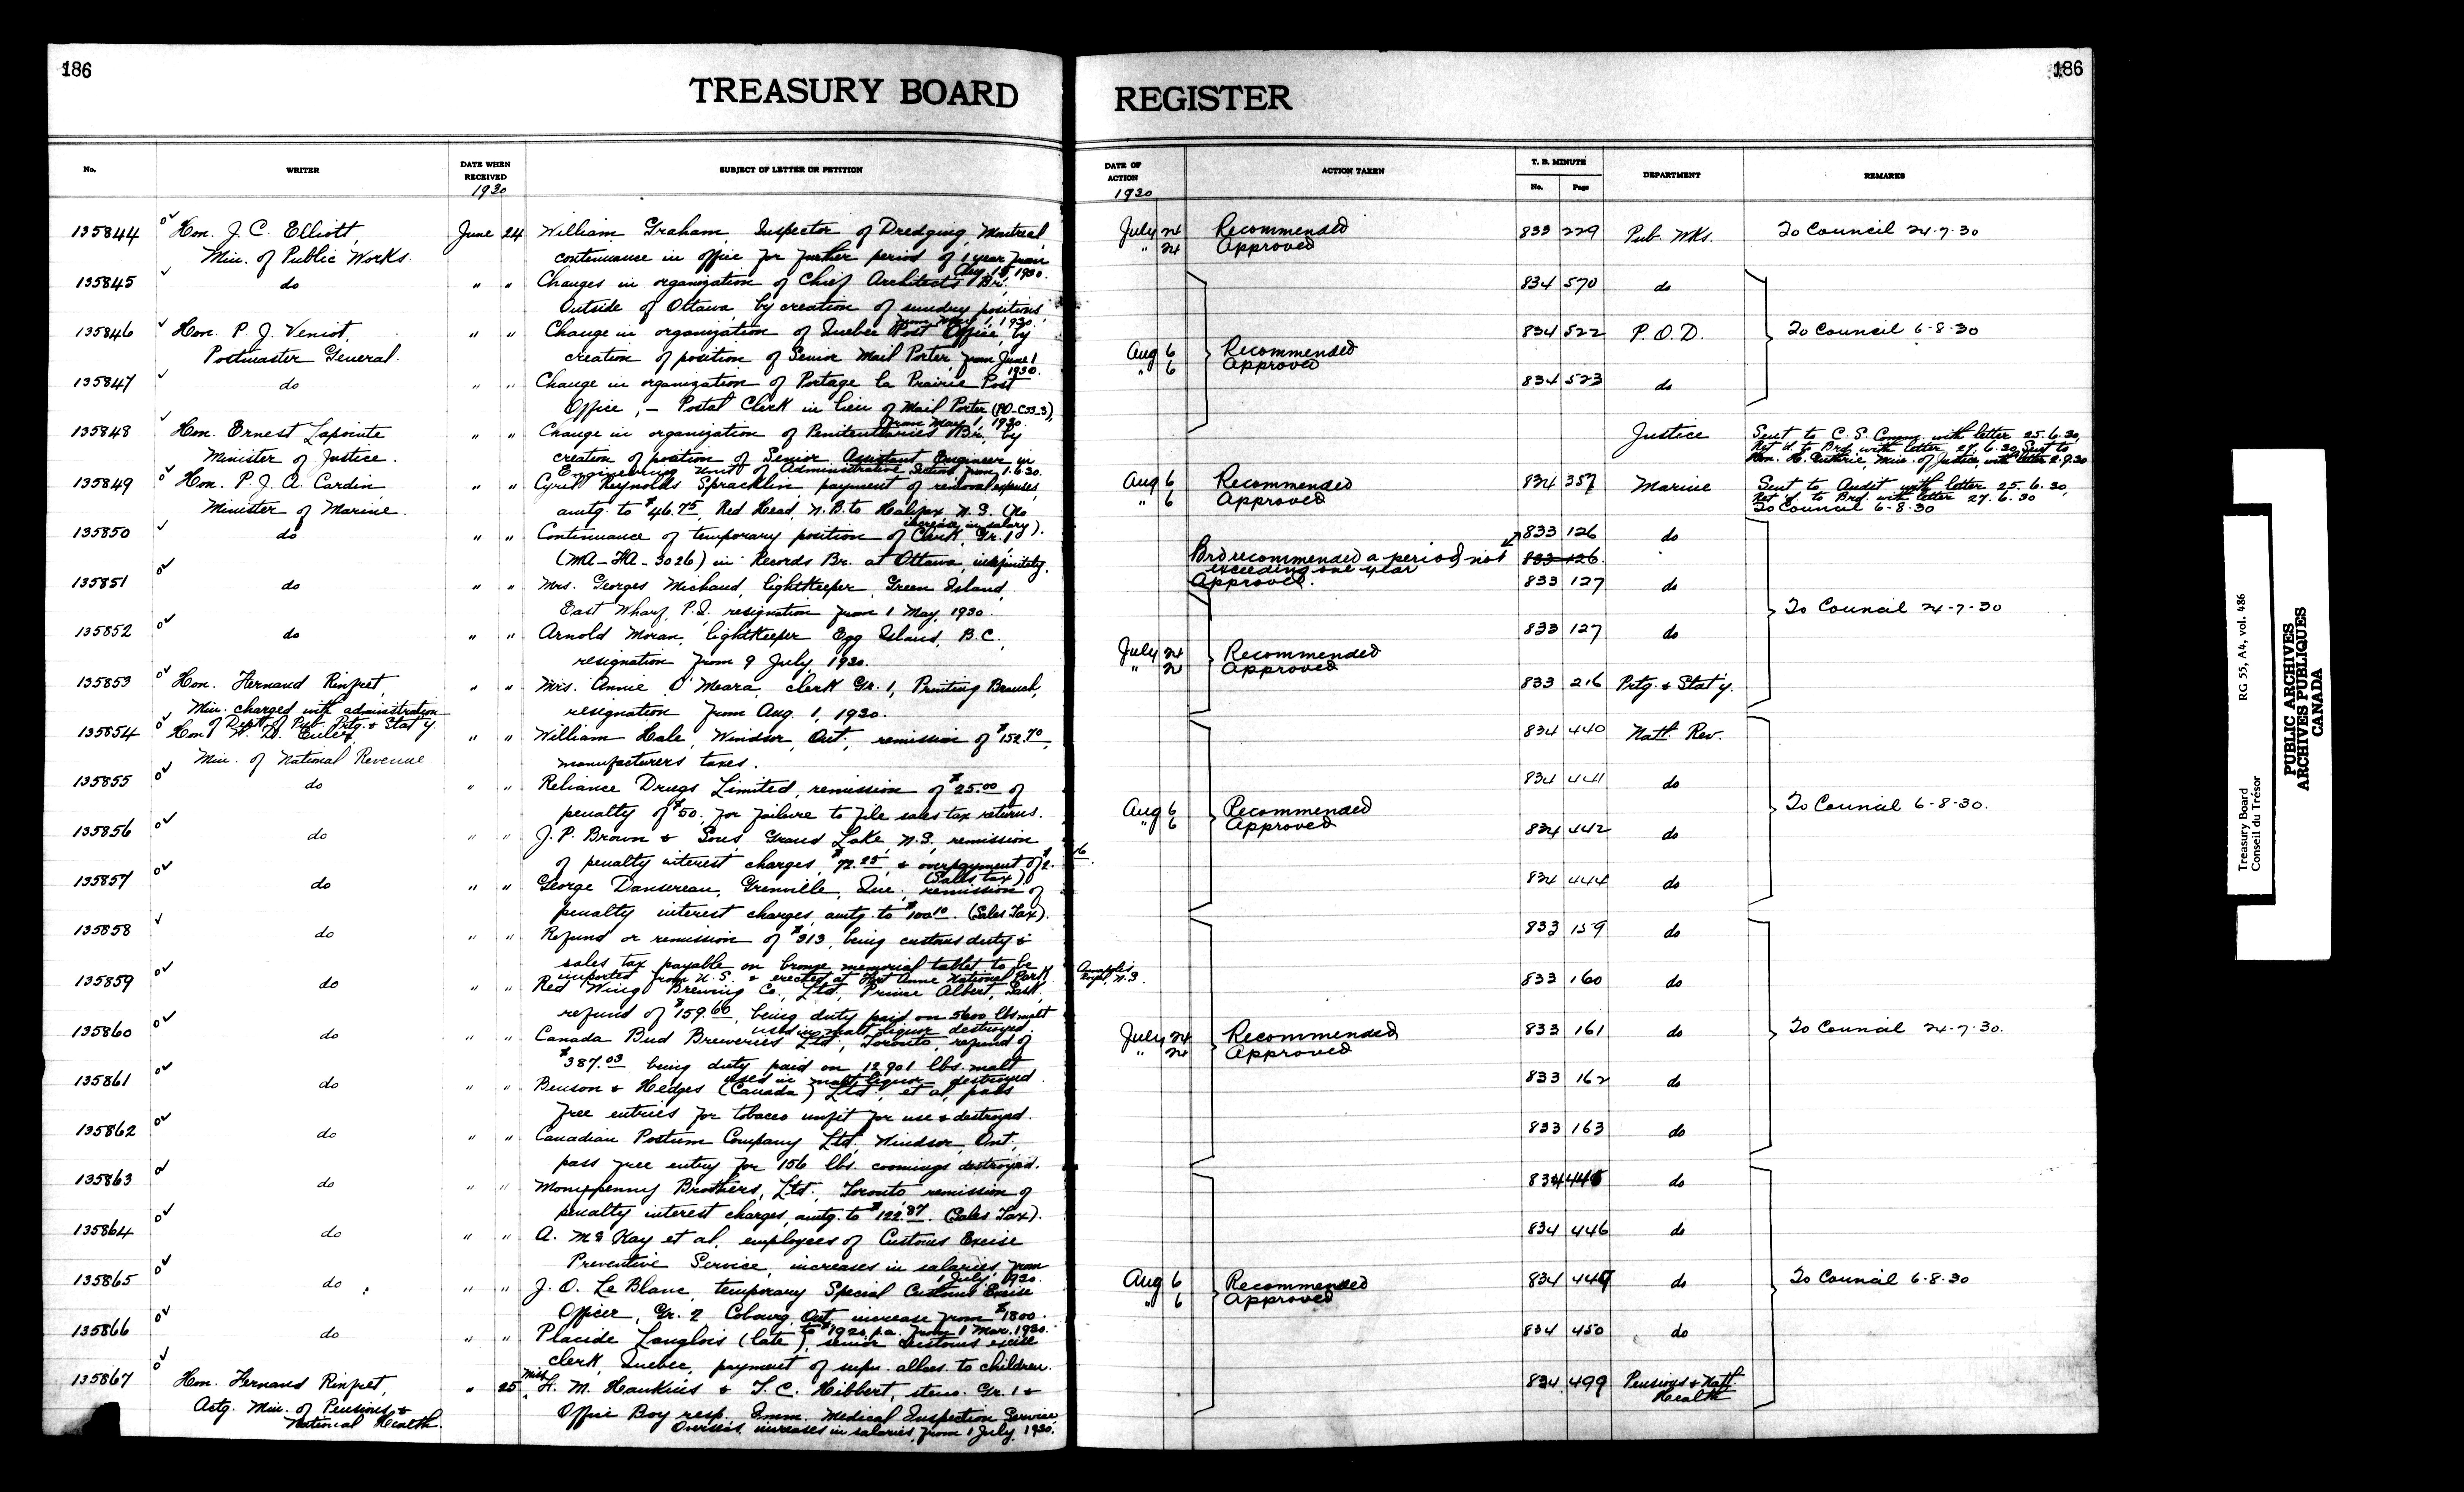 186
TREASURY BOARD
No.
WRITER
DATE WHEN RECEIVED
1930
SUBJECT OF LETTER OR PETITION
135844 Hon. J. C. Elliott, June 24 William Graham, Inspector of Dredging, Montreal,
Min. of Public Works. continuance in office for further period of 1 year from
Aug. 18, 1930.
135845 do " " Changes in organization of Chief Architect's Br.,
Outside of Ottawa, by creation of sundry positions
from May 1, 1930.
135846 Hon. P. J. Veniot, " " Change in organization of Quebec Post Office, by
Postmaster General. creation of position of Senior Mail Porter, from June 1
1930.
135847 do " " Change in organization of Portage la Prairie Post
Office, - Postal Clerk in lieu of Mail Porter (PO-C33-3),
from May 1, 1930.
135848 Hon. Ernest Lapointe " " Change in organization of Penitentiaries Br., by
Minister of Justice. creation of position of Senior Assistant Engineer in
Engineering Unit of Administrative Section from 1.6.30.
135849 Hon. P. J. A. Cardin, " " Cyril Reynolds Spracklin, payment of removal expenses,
Minister of Marine. amtg. to $46.75, Red Head, N.B. to Halifax N.S. (No
increase in salary).
135850 do " " Continuance of temporary position of Clerk, Gr. 1
(MA-HA-3026) in Records Br. at Ottawa, indefinitely.
135851 do " " Mrs. Georges Michaud, lightkeeper, Green Island,
East Wharf, P.Q. resignation from 1 May, 1930.
135852 do " " Arnold Moran, lightkeeper Egg Island, B.C.,
resignation from 9 July, 1930.
135853 Hon. Fernand Rinfret, " " Mrs. Annie O'Meara, clerk Gr. 1, Printing Branch,
Min. charged with administration resignation from Aug. 1, 1930.
of Dept. of Pub. Prtg. & Stat'y.
135854 Hon. W. D. Euler " " William Hale, Windsor, Ont., remission of $152.70,
Min. of National Revenue manufacturers taxes.
135855 do " " Reliance Drugs Limited, remission of $25.00 of
penalty of $50, for failure to file sales tax returns.
135856 do " " J. P. Brown & Sons, Grand Lake, N.S., remission
of penalty interest charges, $72.25, & overpayment of $2.16.
(Sales tax)
135857 do " " George Dansereau, Grenville, Que., remission of
penalty interest charges, amtg. to $100.10. (Sales Tax).
135858 do " " Refund or remission of $313, being customs duty &
sales tax payable on bronze memorial tablet to be
imported from U.S. & erected at Fort Anne National Park Annapolis Royal, N.S.
135859 do " " Red Wing Brewing Co., Ltd., Prince Albert, Sask.,
refund of $159.60, being duty paid on 5600 lbs malt
used in malt liquor destroyed.
135860 do " " Canada Bud Breweries Ltd., Toronto, refund of
$387.03 being duty paid on 12901 lbs. malt
used in malt liquor destroyed.
135861 do " " Benson & Hedges (Canada) Ltd., et al, pass
free entries for tobacco unfit for use & destroyed.
135862 do " " Canadian Postum Company Ltd., Windsor, Ont.,
pass free entry for 156 lbs. coomings destroyed.
135863 do " " Monypenny Brothers, Ltd., Toronto, remission of
penalty interest charges, amtg. to $122.87. (Sales Tax).
135864 do " " A. McKay et al, employees of Customs Excise
Preventive Service, increases in salaries, from
1 July, 1930.
135865 do " " J. O. Le Blanc, temporary Special Customs Excise
Officer, Gr. 2 Cobourg, Ont., increase from $1800
to $1920 p.a. from 1 Mar. 1930.
135866 do " " Placide Langlois (late), senior customs excise
clerk, Quebec, payment of supn. allces. to children.
135867 Hon. Fernand Rinfret, " 25 Miss H. M. Hawkins & T. C. Hibbert, steno. Gr. 1 &
Actg. Min. of Pensions & Office Boy resp., Imm. Medical Inspection Service,
National Health. Overseas, increases in salaries, from 1 July, 1930.
186
REGISTER
DATE OF ACTION
1930
ACTION TAKEN
T. B. MINUTE
No. Page
DEPARTMENT
REMARKS
July 24 Recommended 833 229 Pub. Wks. To Council 24-7-30
" 24 Approved
834 570 do
834 522 P.O.D. To Council 6-8-30
Aug 6 Recommended
" 6 Approved
834 523 do
Justice Sent to C. S. Comm. with letter 25.6.30,
Ret'd. to Brd. with letter 27.6.30, Sent to
Hon. H. Guthrie, Min. of Justice, with letter 2.9.30
Aug 6 Recommended 834 357 Marine Sent to Audit with letter 25.6.30,
" 6 Approved Ret'd. to Brd. with letter 27.6.30
To Council 6-8-30
833 126 do
Brd recommended a period not 833 126
exceeding one year
Approved. 833 127 do
To Council 24-7-30
833 127 do
July 24 Recommended
" 24 Approved
833 216 Prtg. & Stat'y.
834 440 Natl. Rev.
834 441 do
Aug 6 Recommended To Council 6-8-30.
" 6 Approved
834 442 do
834 444 do
833 159 do
833 160 do
July 24 Recommended 833 161 do To Council 24-7-30.
" 24 Approved
833 162 do
833 163 do
834 445 do
834 446 do
Aug 6 Recommended 834 449 do To Council 6-8-30
" 6 Approved
834 450 do
834 499 Pensions & Natl.
Health
Treasury Board RG 55, A4, vol. 486
Conseil du Trésor
PUBLIC ARCHIVES
ARCHIVES PUBLIQUES
CANADA